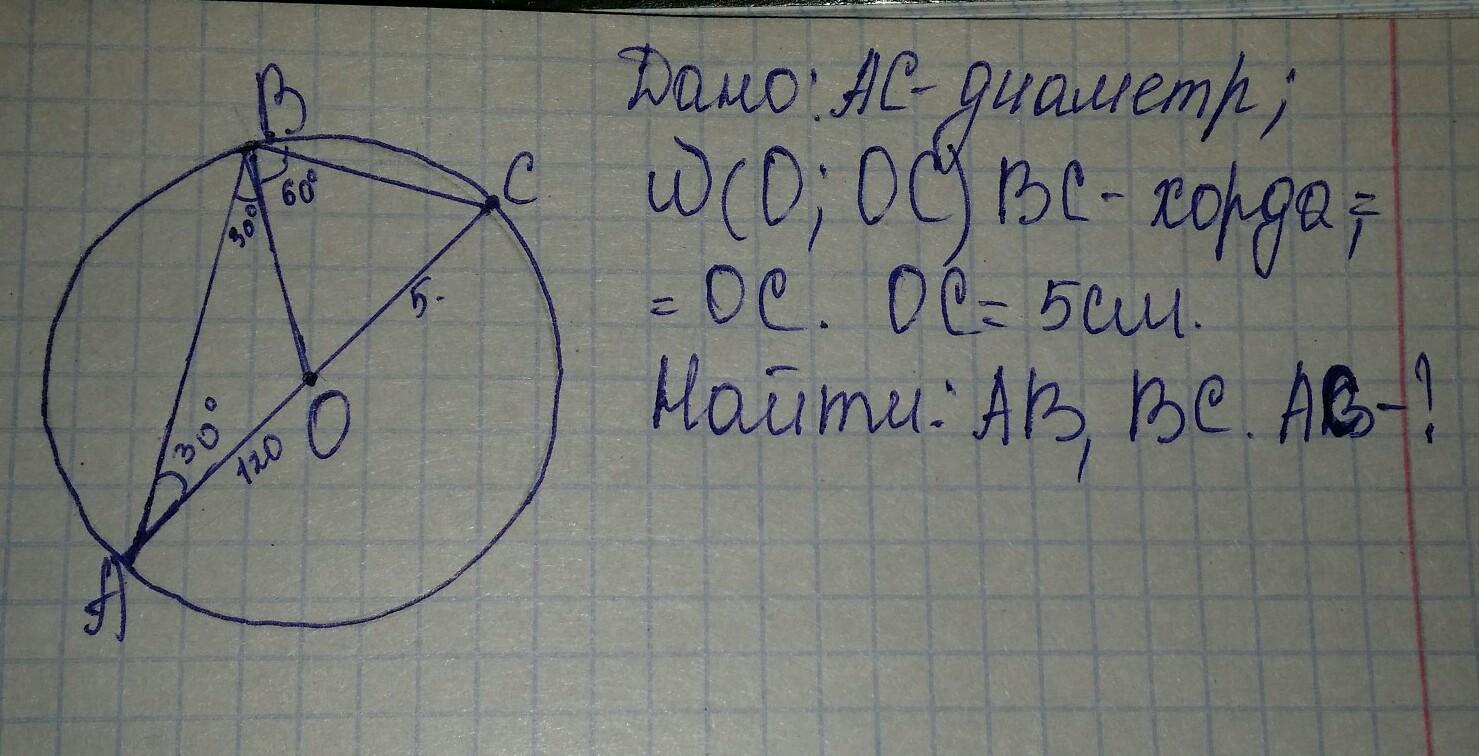 B
C
60°
30°
5.
O
30°
120
A
Дано: АС- диаметр;
W(O; OC) BC- хорда;=
= OC. OC= 5см.
Найти: AB, BC. AC-?